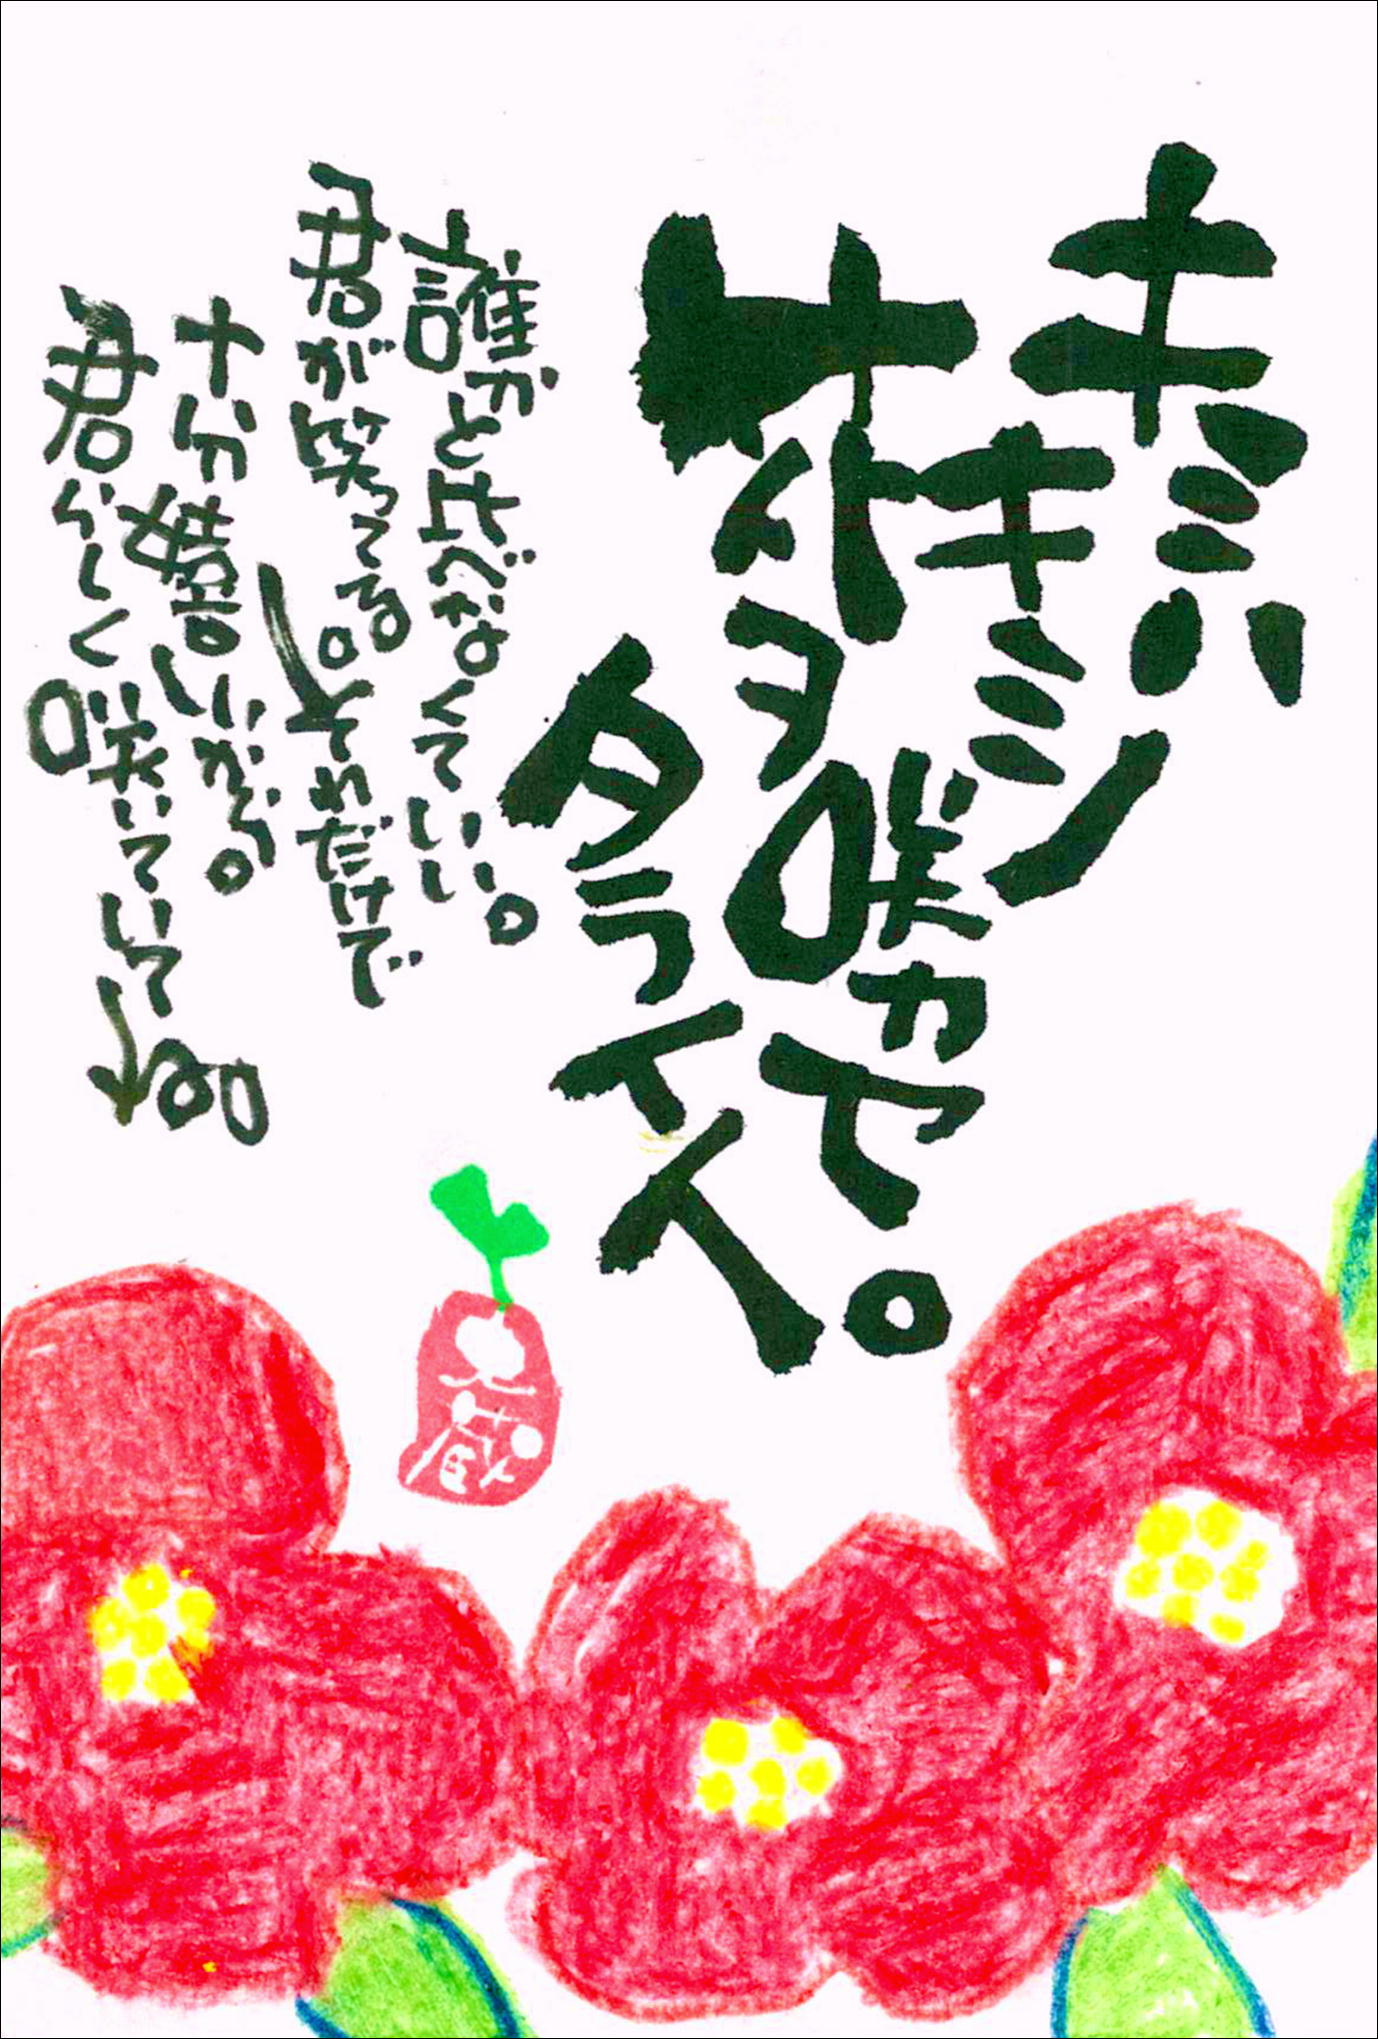 キミハ
キミノ
花ヲ咲カセ。
タライイ
誰かと比べなくていい。
君が笑ってる。それだけで
十分嬉しいから。
君らしく咲いていてね